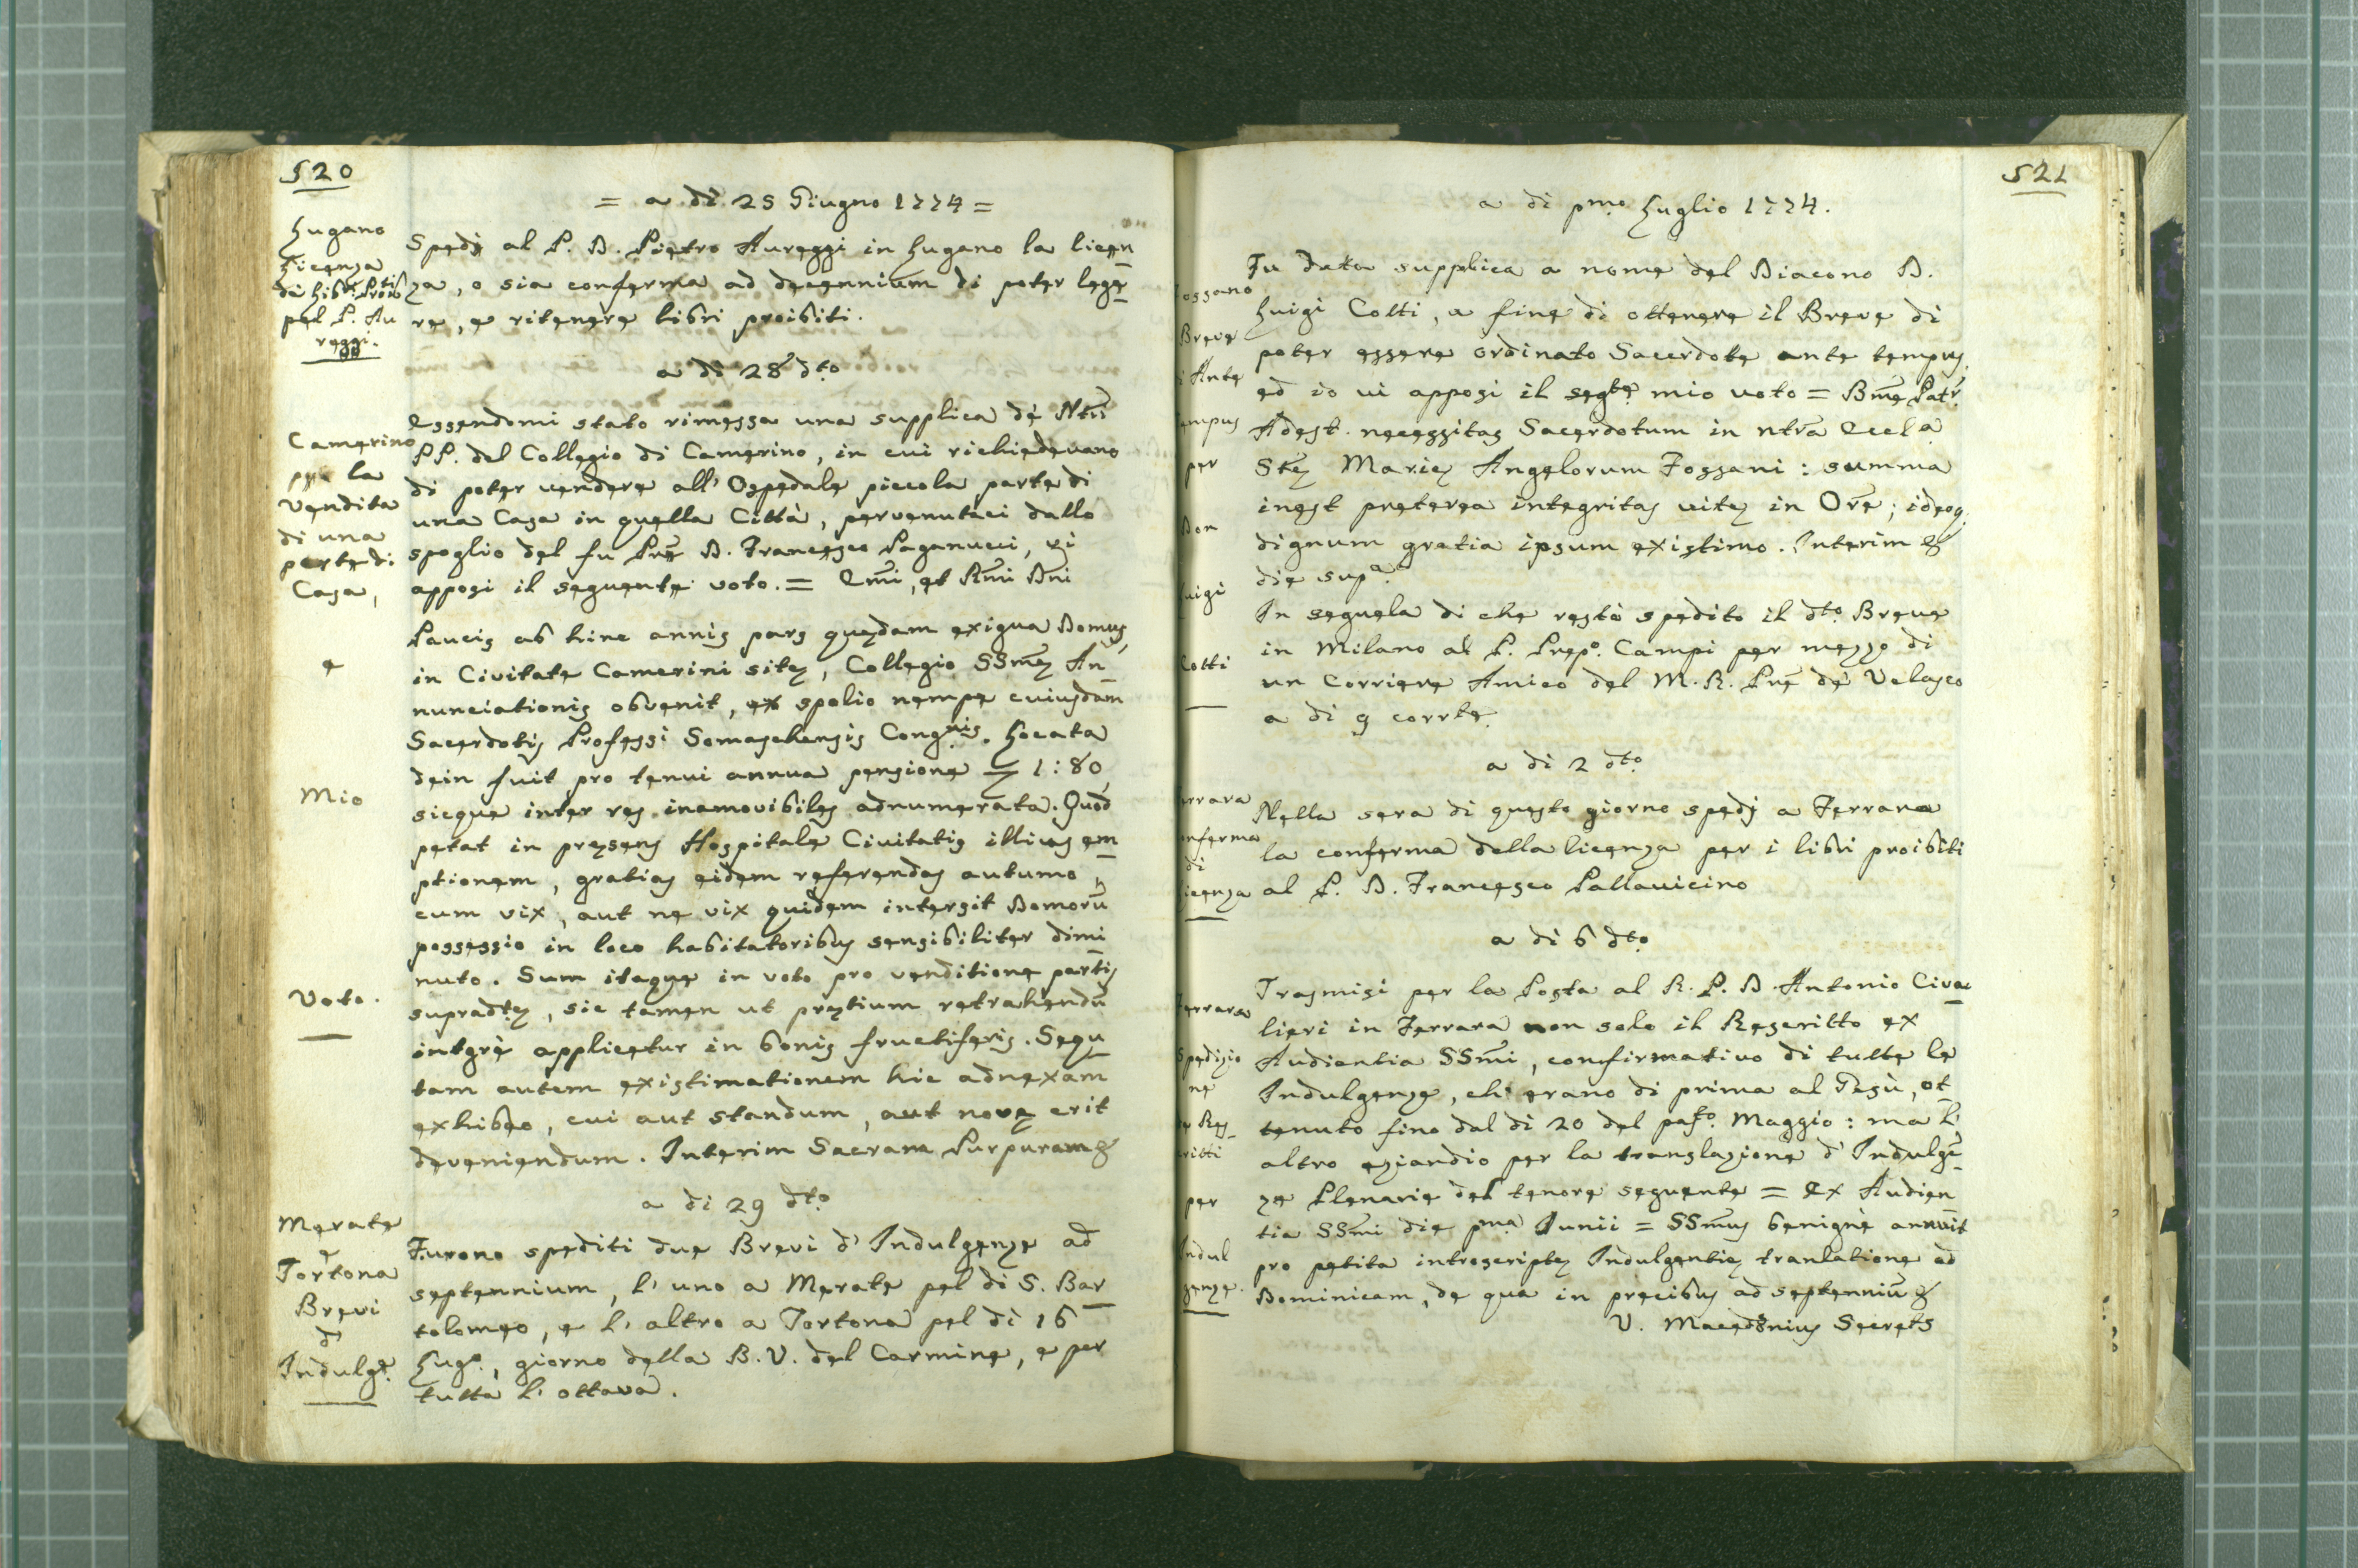 520
= a dì 25 Giugno 1774 =
Lugano
Licenza
di Libri Proibti
pel P. Au
reggi.
Spedj al P. D. Pietro Aureggi in Lugano la licen
za, o sia conferma ad decennium di poter legge
re, e ritenere libri proibiti.
a dì 28 dto
Camerino
per la
Vendita
di una
parte di
Casa,
e
Mio
Voto.
Essendomi stato rimessa una supplica de' Ntri
PP. del Collegio di Camerino, in cui richiedevano
di poter vendere all' Ospedale piccola parte di
una Casa in quella Città, pervenutaci dallo
spoglio del fu Pre D. Francesco Paganucci, vi
apposi il seguente voto. = Emi, et Rmi Dni
Paucis ab hinc annis pars quędam exigua Domus,
in Civitate Camerini sitę, Collegio SSmę An
nunciationis obvenit, ex spolio nempe cuiusdam
Sacerdotis Professi Somaschensis Congnis. Locata
dein fuit pro tenui annua pensione 1:80,
sicque inter res inamovibiles adnumerata. Quod
petat in pręsens Hospitale Civitatis illius em
ptionem, gratias eidem referendas autumo,
cum vix, aut ne vix quidem intersit Domorū
possessio in loco habitatoribus sensibiliter dimi
nuto. Sum itaque in voto pro venditione partis
supradtę, sic tamen ut prętium retrahendū
intgrè applicetur in bonis fructiferis. Sequ
tam autem existimationem hic adnexam
exhibeo, cui aut standum, aut novę erit
deveniendum. Interim Sacram Purpuram &
a dì 29 dto
Merate
e
Tortona
Brevi
d'
Indulge.
Furono spediti due Brevi d' Indulgenze ad
septennium, l' uno a Merate pel dì S. Bar
tolomeo, e l' altro a Tortona pel dì 16
Lugo., giorno della B. V. del Carmine, e per
tutta l' ottava.
521
a dì pmo Luglio 1774.
Fossano
Breve
i Ante
empus
per
Don
Luigi
Cotti
Fu data supplica a nome del Diacono D.
Luigi Cotti, a fine di ottenere il Breve di
poter essere ordinato Sacerdote ante tempus,
ed io vi apposi il segte mio voto = Bme Patr.
Adest necessitas Sacerdotum in ntra Eccla
Stę Marię Angelorum Fossani : summa
inest preterea integritas vitę in Ore; ideoq.
dignum gratia ipsum existimo. Interim &
die supa.
In seguela di che restò spedito il dto Breve
in Milano al P. Prepo. Campi per mezzo di
un Corriere Amico del M. R. Pre de Velasco
a dì 9 corrte.
a dì 2 dto
errara
onferma
di
icenza
Nella sera di questo giorno spedj a Ferrara
la conferma della licenza per i libri proibiti
al P. D. Francesco Pallavicino
a dì 6 dto
Ferrara
Spedizio
ne
de Res
critti
per
Indul
genze.
Trasmisi per la Posta al R. P. D. Antonio Civa
lieri in Ferrara non solo il Rescritto ex
Audientia SSmi, confirmativo di tutte le
Indulgenze, ch' erano di prima al Gesù, ot
tenuto fino dal dì 20 del pasto. Maggio : ma l'
altro eziandio per la translazione d' Indulgē
ze Plenarie del tenore seguente = Ex Audien
tia SSmi die pma Junii = SSmus benignè annuit
pro petita introscriptę Indulgentię tranlatione ad
Dominicam, de qua in precibus ad septenniū &
V. Macedonius Secrets